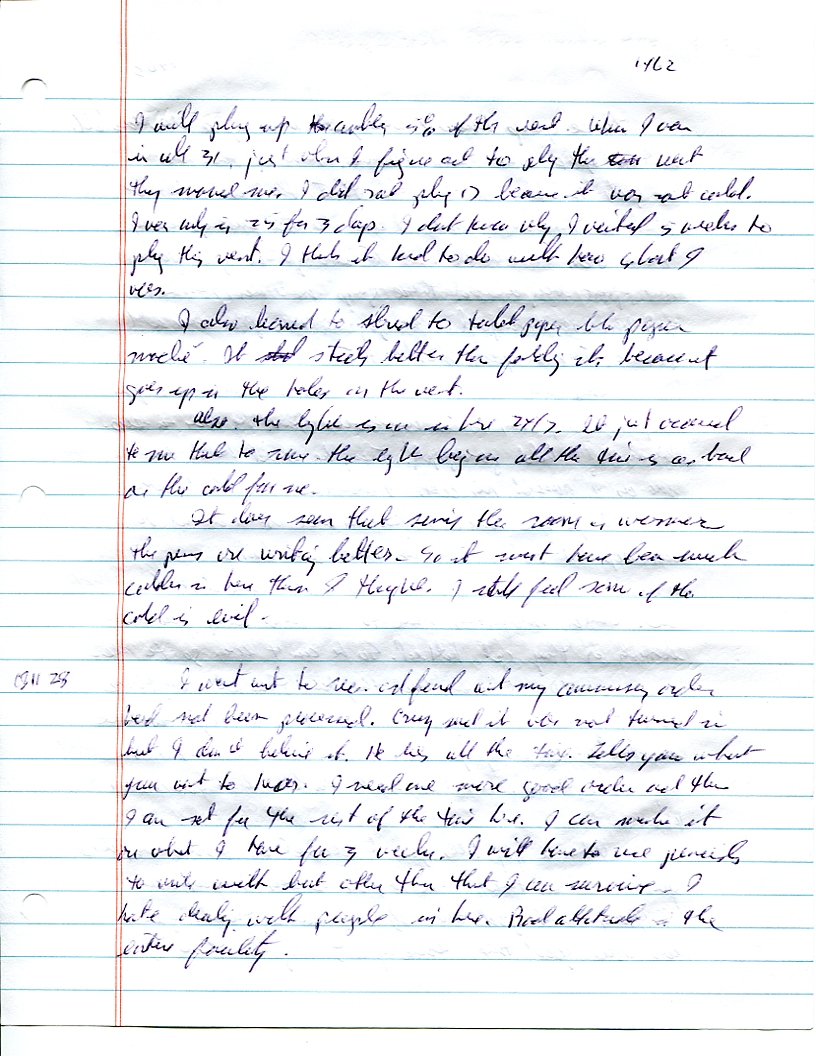 1462
I will plug up 50% of the vent. When I was
in cell 31, just when I figured out to plug the vent
they moved me. I did not plug 17 because it was not cold.
I was only in 25 for 3 days. I don't know why I waited weeks to
plug this vent. I think it had to do with how I
was.
I also learned to toilet paper like paper
maché. It sticks better than because it
goes up in the holes in the vent.
Also, the light is on in here 24/7. It just occurred
to me that to me the light being on all the time is as bad
as the cold for me.
It does seem that since the room is warmer
the pens are writing better. So it must have been much
colder in here than I thought. I still feel some of the
cold is evil.
0811 28
I went out to and found out my commissary order
had not been processed. said it was not turned in
but I don't believe it. He lies all the time. Tells you what
you want to hear. I need one more good order and then
I am set for the rest of the time here. I can make it
on what I have for 3 weeks. I will have to use pencils
to write with but other than that I can survive. I
hate dealing with people in here. Bad attitude in the
entire facility.